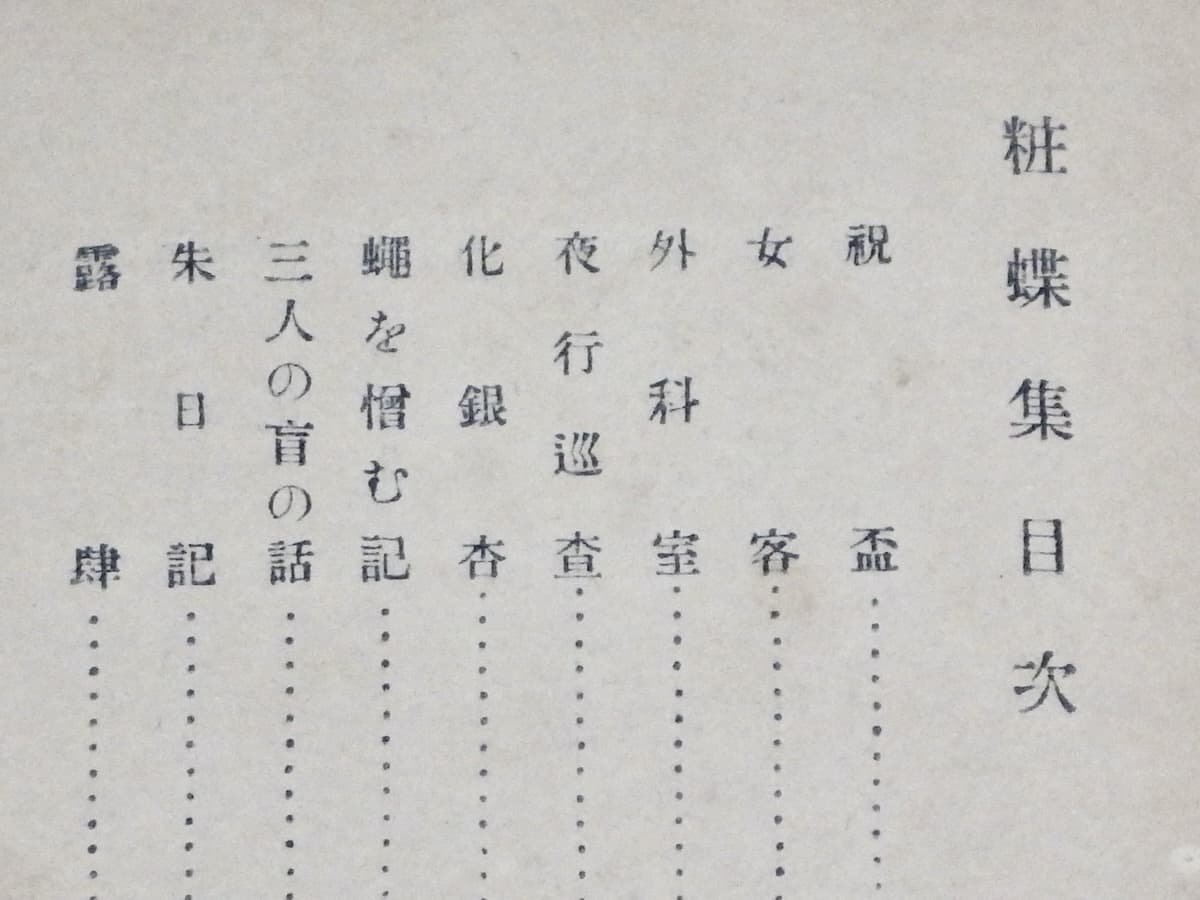 粧蝶集目次
祝盃
女客
外科室
夜行巡査
化銀杏
蠅を憎む記
三人の盲の話
朱日記
露肆